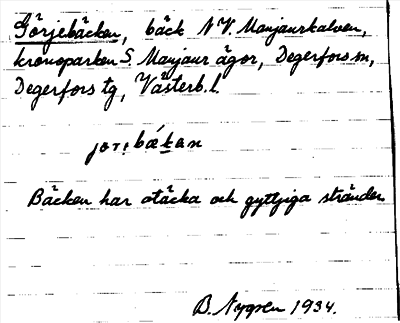 Görjebäcken, bäck N V. Manjaurkalven,
kronoparken S. Manjaur ägor, Degerfors sn,
Degerfors tg, Västerb. l.
Bäcken har otäcka och gyttjiga stränder
B. Nygren 1934.